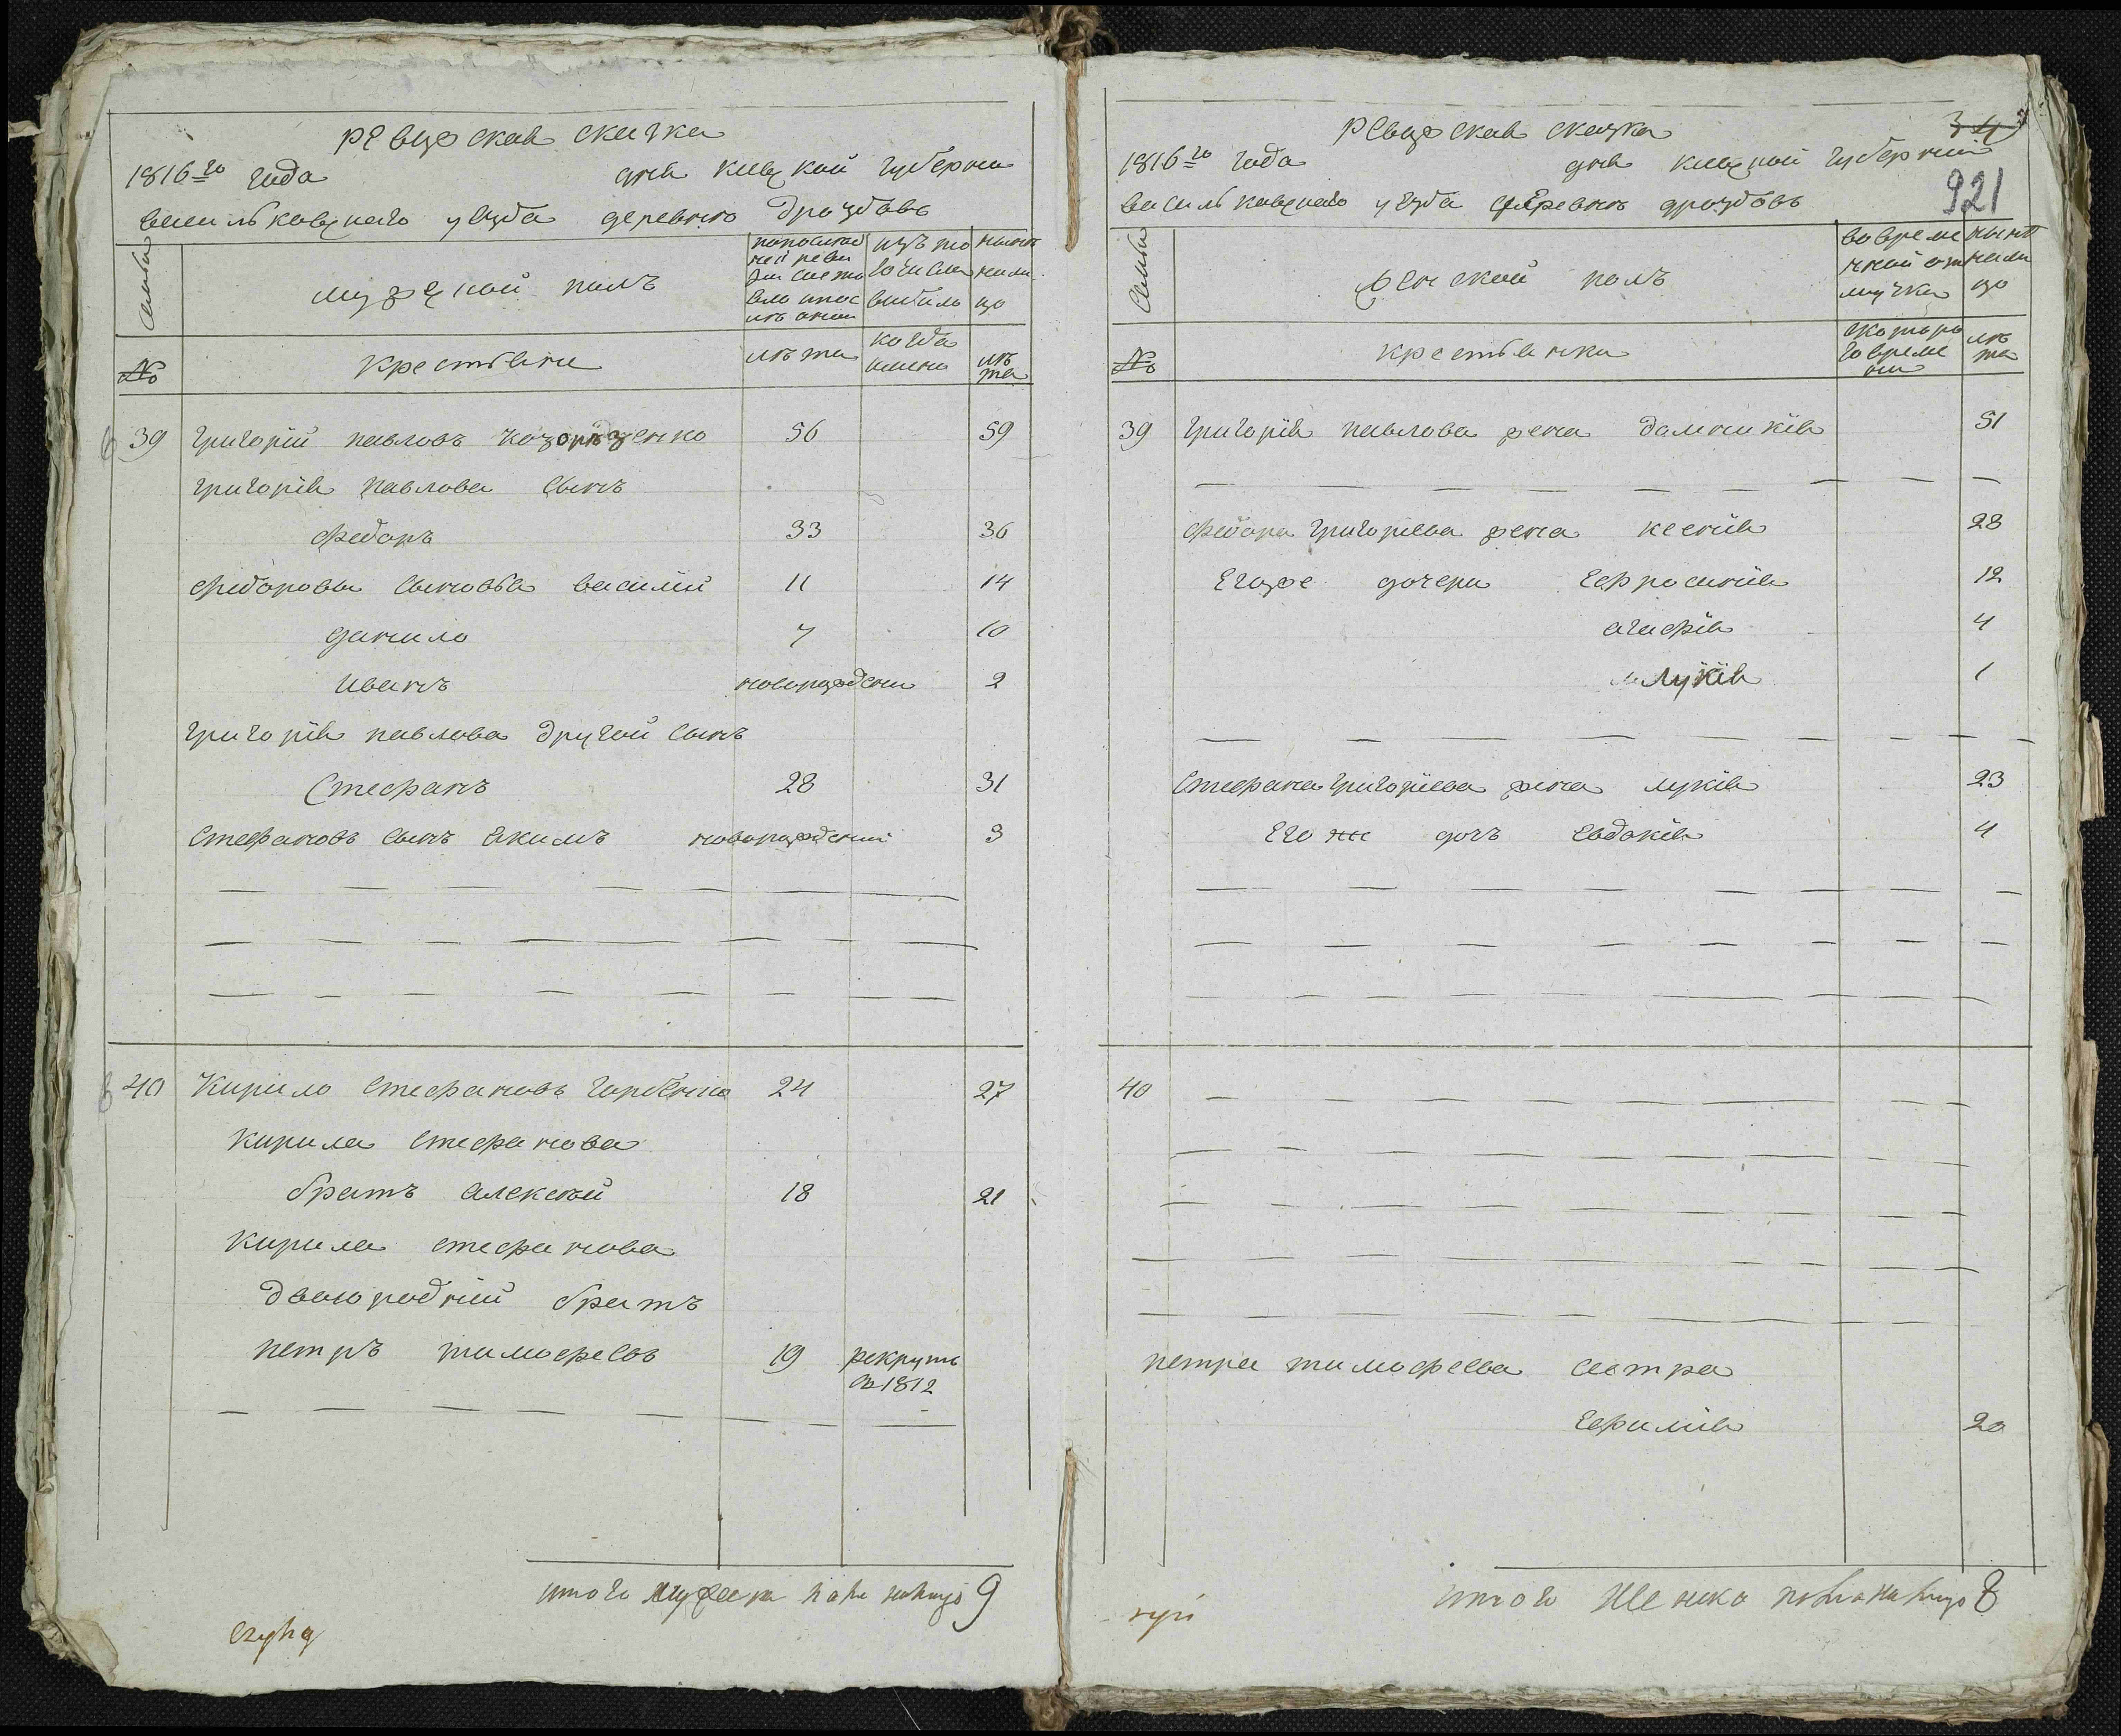 ревизская сказка
1816го года дня киевской губернии
васильковского уезда деревни Дроздовъ
Семьи
мужеской полъ
по последней ревизии состояло и после оной
изъ того числа выбыло
ныне на лицо
№
крестьяне
лета
когда именно
лета
39 григорий павловъ 56 59
григория павлова сынъ
федоръ 33 36
федоровы сыновья василий 11 14
данило 7 10
иванъ новорожденн 2
григория павлова другой сынъ
Стефанъ 28 31
Стефановъ сынъ якимъ новорожденний 3
40 Кирило стефановъ горбенко 24 27
кирила стефанова
братъ алексей 18 21
кирила стефанова
двоюродний братъ
петръ тимофеевъ 19 рекрутъ
в 1812
итого мужеска пола налицо 9
ревизская сказка
34
1816го года дня киевской губернии
921
васильковского уезда деревни дроздовъ
Семьи
женской полъ
во временной отлучке
ныне на лицо
№
крестьянки
с которого времени
лета
39 григория павлова жена домникия 51
федора григориева жена ксения 28
Егоже дочери Ефросиния 12
агафия 4
лукия 1
Стефана григориева жена лукия 23
Его же дочь Евдокия 4
40
петра тимофеева сестра
Ефимия 20
итого женска пола налицо 8